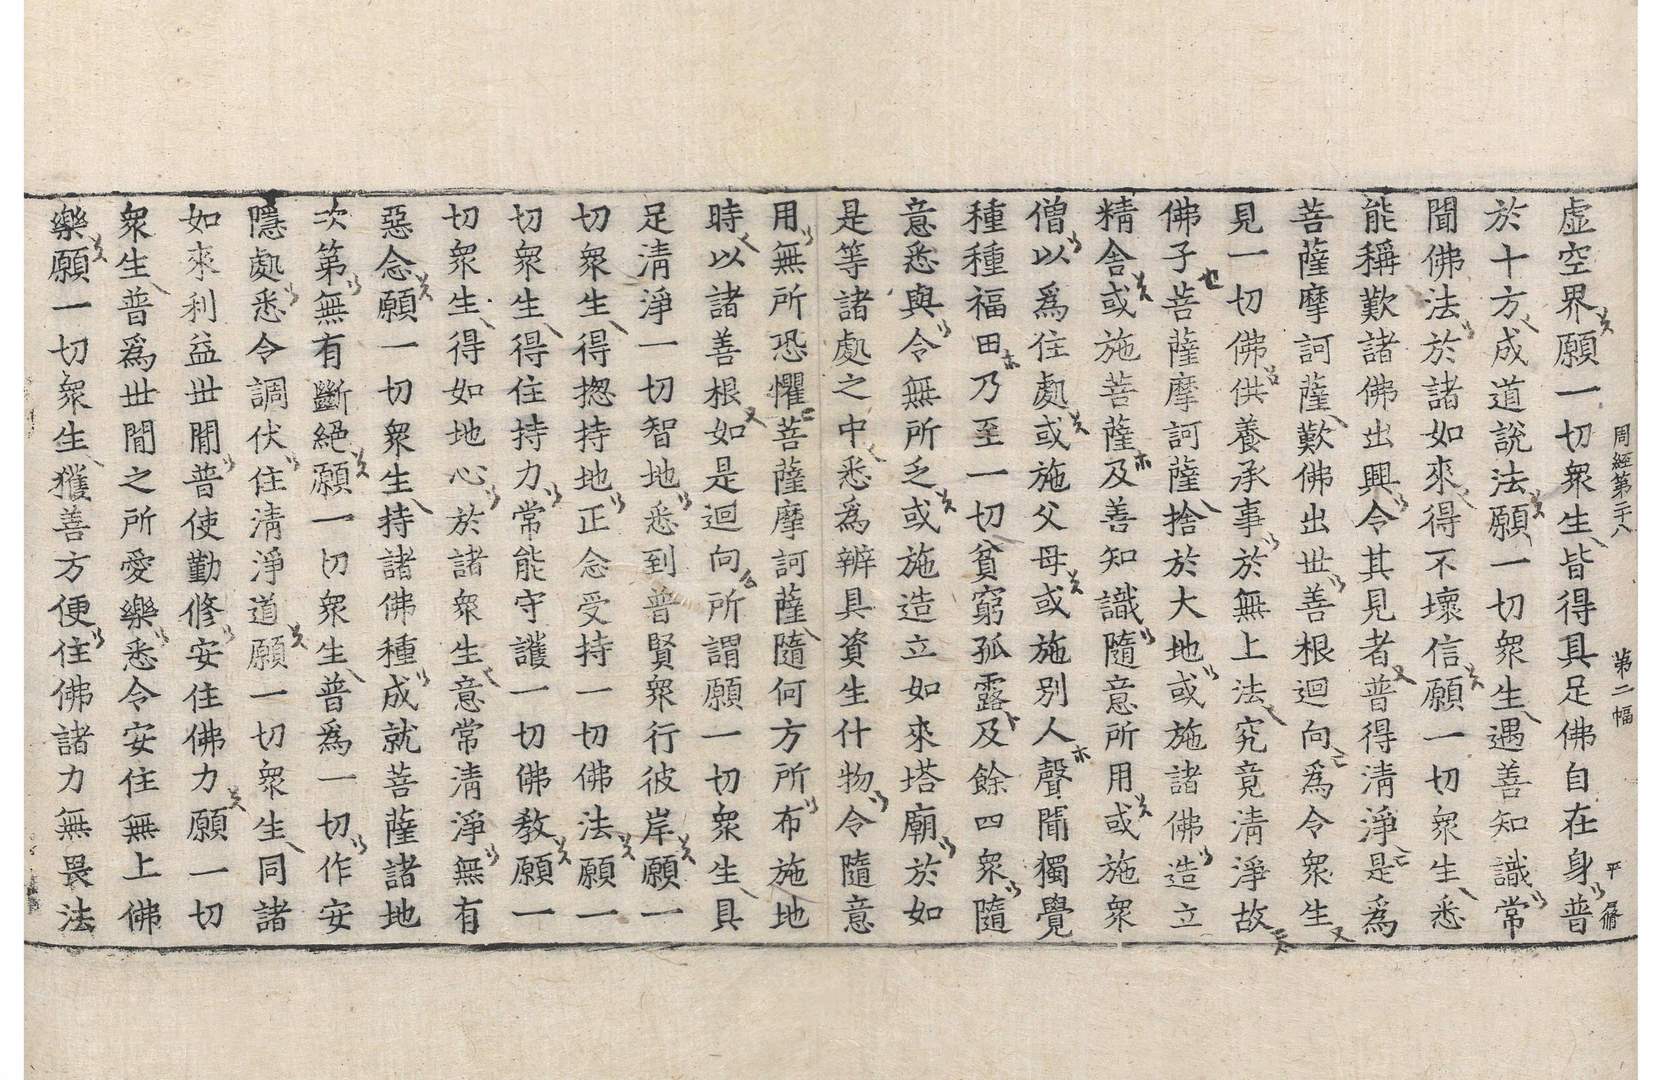 周經第二十八　第二幅　平　侑
虛空界願一切衆生皆得具足佛自在身普
於十方成道說法願一切衆生遇善知識常
聞佛法於諸如來得不壞信願一切衆生悉
能稱歎諸佛出興令其見者普得清淨是爲
菩薩摩訶薩歎佛出世善根迴向爲令衆生
見一切佛供養承事於無上法究竟清淨故
佛子菩薩摩訶薩捨於大地或施諸佛造立
精舍或施菩薩及善知識隨意所用或施衆
僧以爲住處或施父母或施別人聲聞獨覺
種種福田乃至一切貧窮孤露及餘四衆隨
意悉與令無所乏或施造立如來塔廟於如
是等諸處之中悉爲辨具資生什物令隨意
用無所恐懼菩薩摩訶薩隨何方所布施地
時以諸善根如是迴向所謂願一切衆生具
足清淨一切智地悉到普賢衆行彼岸願一
切衆生得揔持地正念受持一切佛法願一
切衆生得住持力常能守護一切佛教願一
切衆生得如地心於諸衆生意常清淨無有
惡念願一切衆生持諸佛種成就菩薩諸地
次第無有斷絕願一切衆生普爲一切作安
隱處悉令調伏住清淨道願一切衆生同諸
如來利益世間普使勤修安住佛力願一切
衆生普爲世間之所愛樂悉令安住無上佛
樂願一切衆生獲善方便住佛諸力無畏法